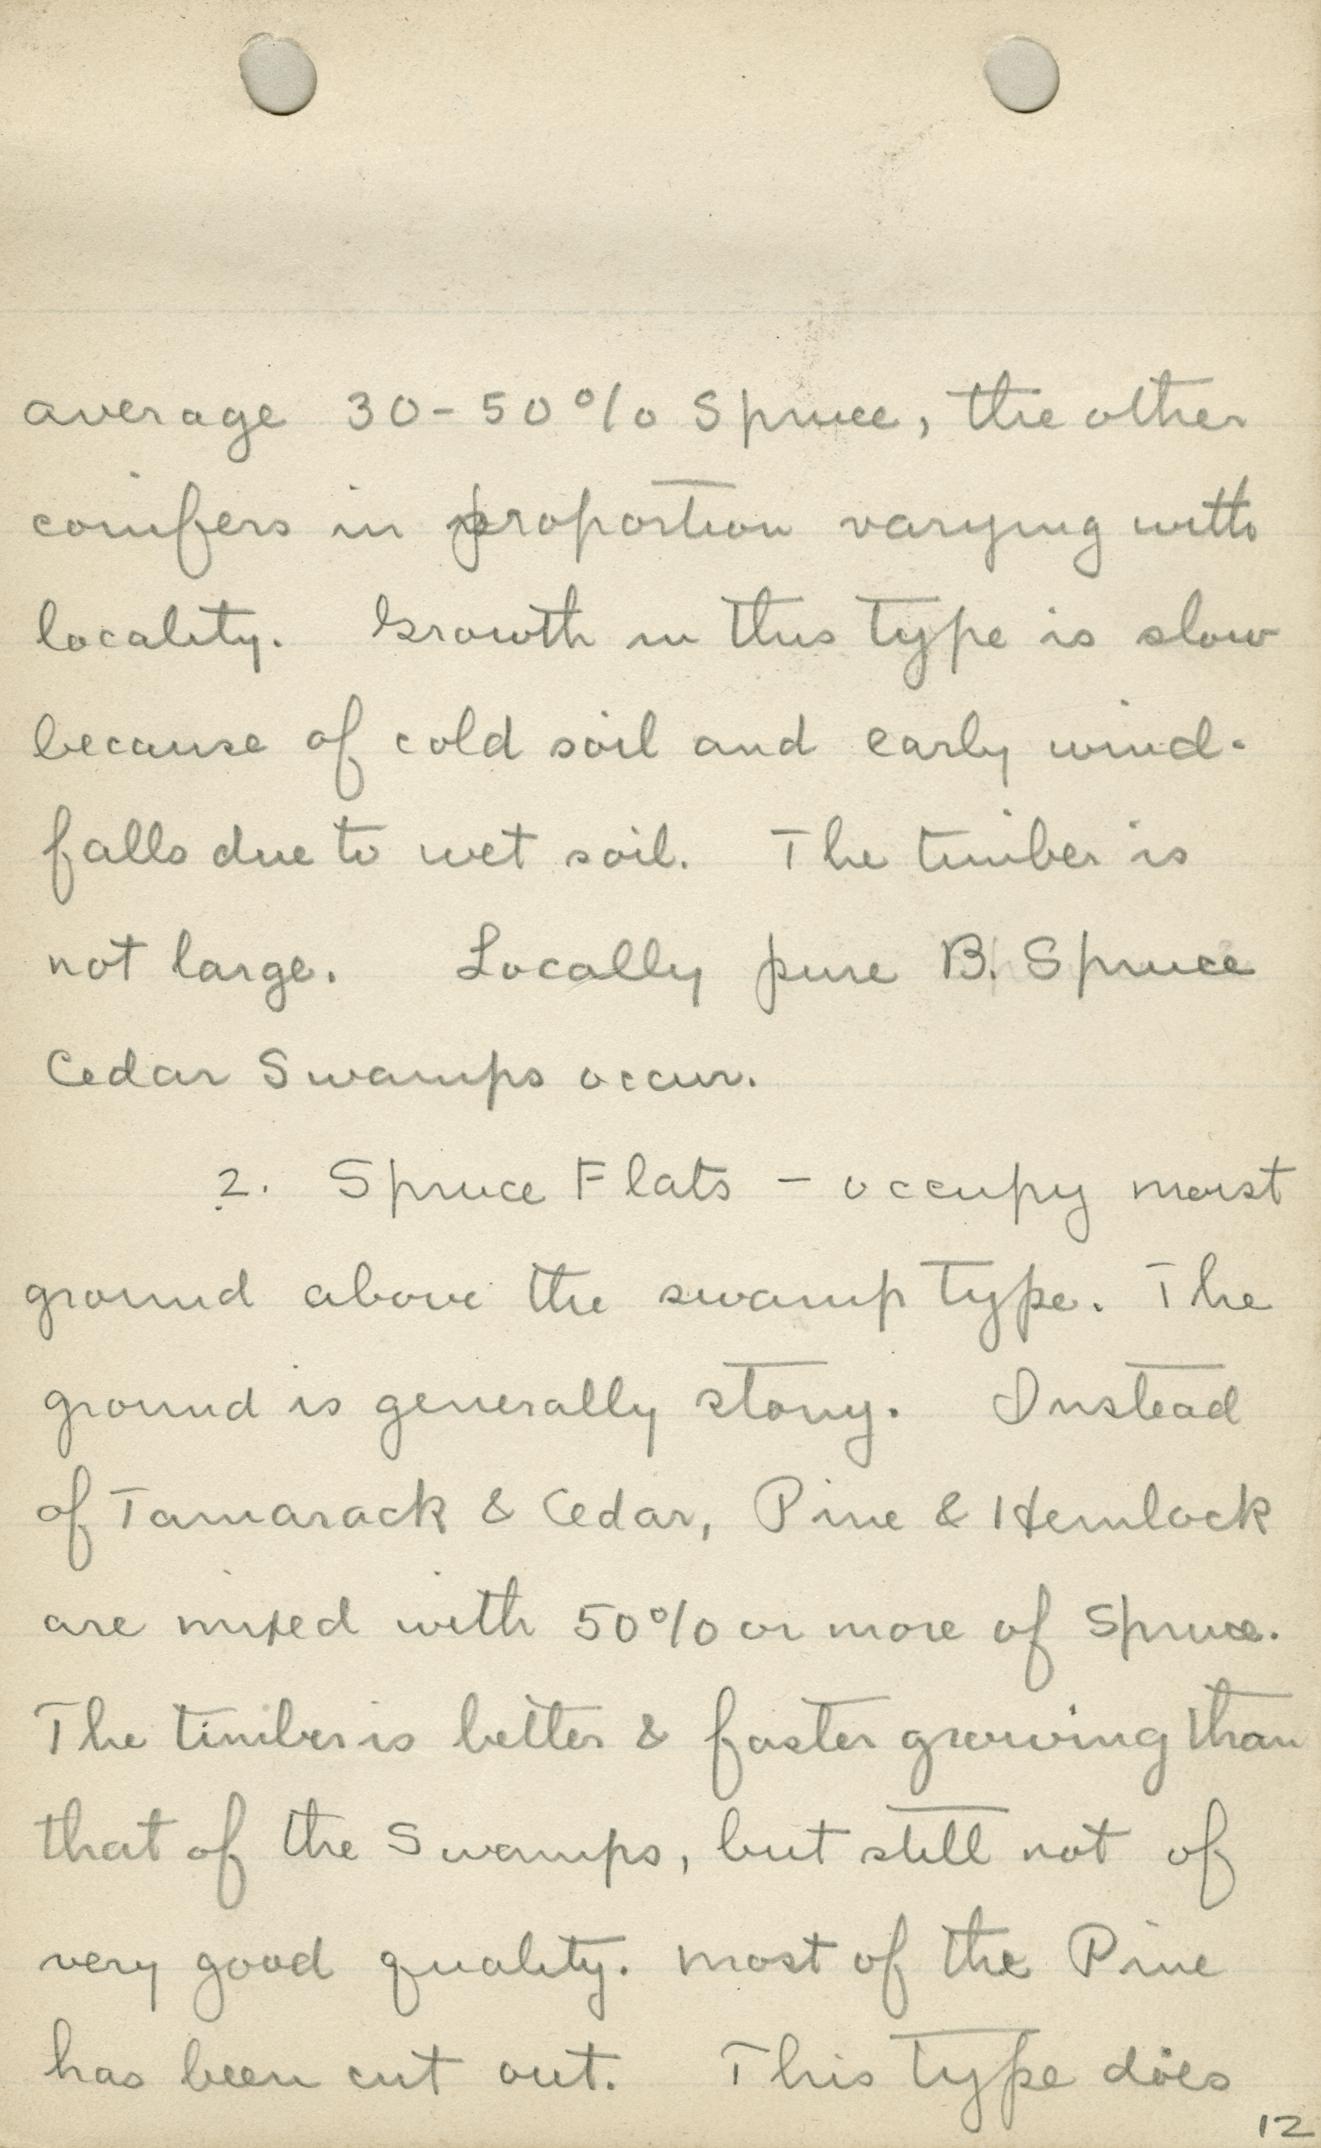 average 30-50% Spruce, the other
conifers in proportion varying with
locality. Growth in this type is slow
because of cold soil and early wind-
falls due to wet soil. The timber is
not large. Locally pure B. Spruce
Cedar Swamps occur.
2. Spruce Flats - occupy moist
ground above the swamp type. The
ground is generally stony. Instead
of Tamarack & Cedar, Pine & Hemlock
are mixed with 50% or more of Spruce.
The timber is better & faster growing than
that of the Swamps, but still not of
very good quality. most of the Pine
has been cut out. This type does
12